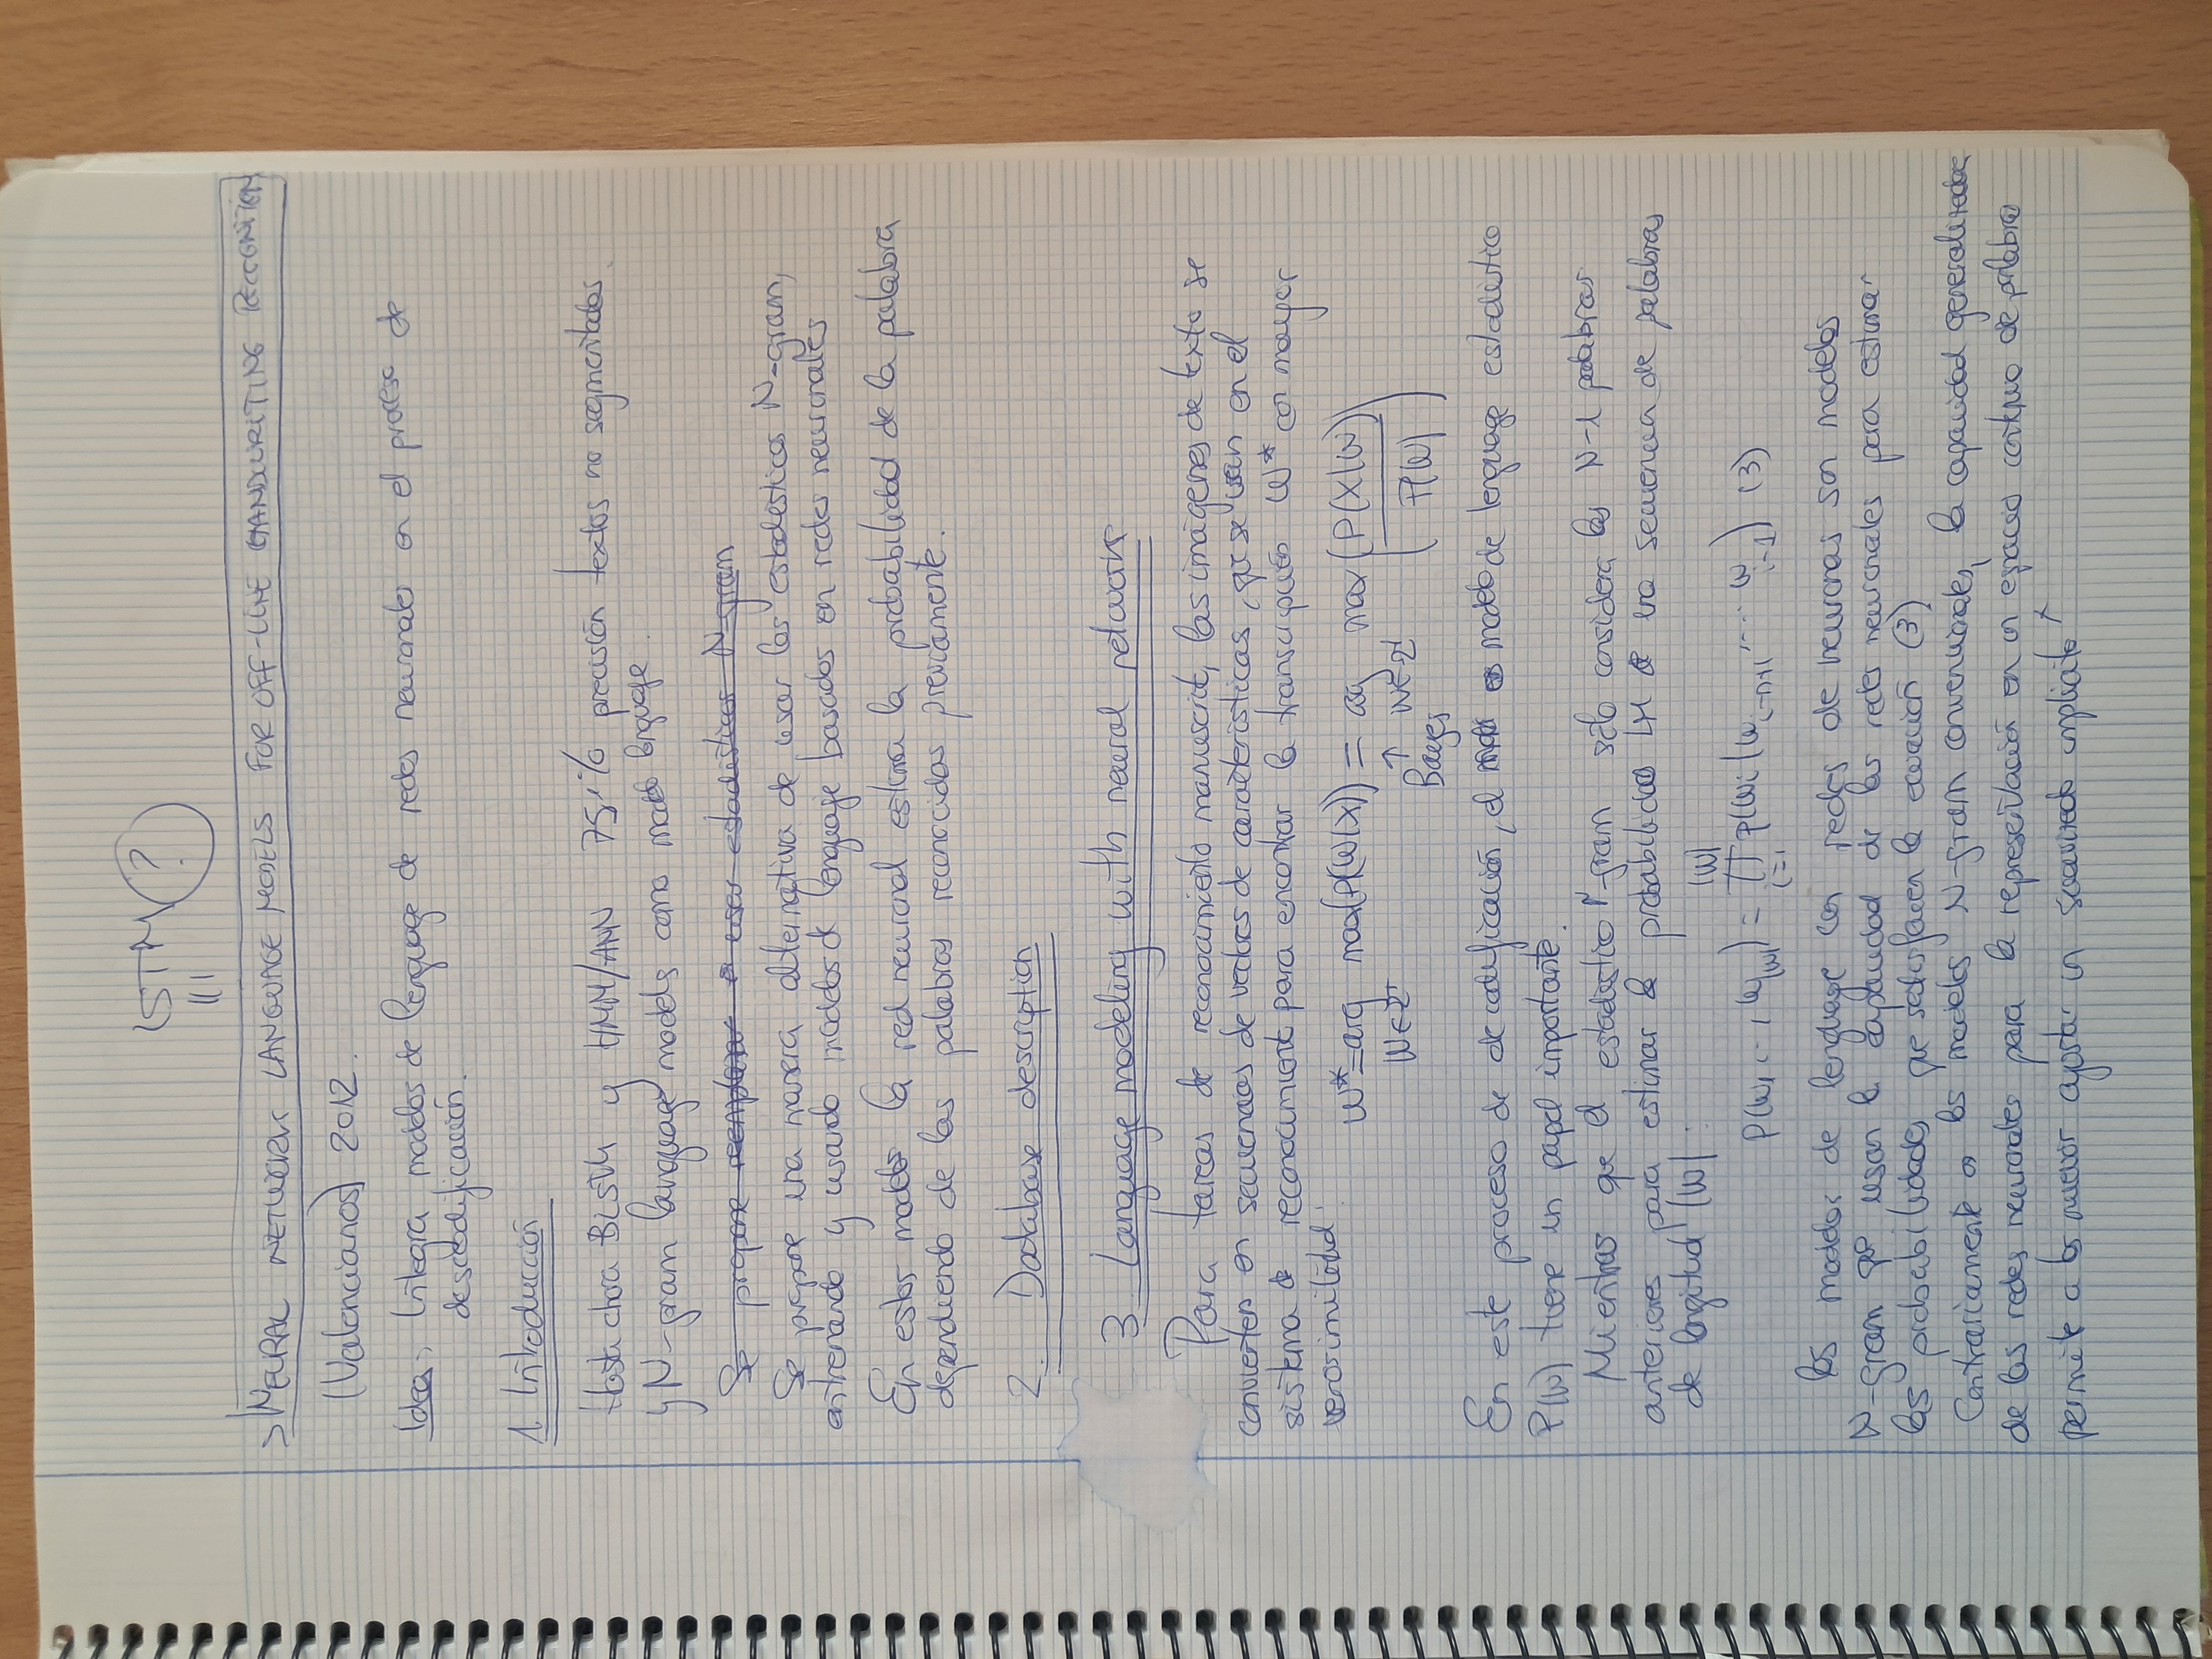 LSTM ?
> NEURAL NETWORK LANGUAGE MODELS FOR OFF-LINE HANDWRITING RECOGNITION
(Valencianos) 2012.
Idea: Integra modelos de lenguage de redes neuronales en el proceso de
descodificación.
1. Introducción
Hasta ahora BLSTM y HMM/ANN 75% precisión textos no segmentados.
y N-gram language models como modelo lenguage.
Se propone reemplazar usar estadísticos N-gram
Se propone una manera alternativa de usar los estadísticos N-gram,
entrenando y usando modelos de lenguage basados en redes neuronales
En estos modelos la red neuronal estima la probabilidad de la palabra
dependiendo de las palabras reconocidas previamente.
2. Database description
3. Language modeling with neural networks
Para tareas de reconocimiento manuscrito, las imágenes de texto se
convierten en secuencias de vectores de características, que se usan en el
sistema de reconocimiento para encontrar la transcripción W* con mayor
verosimilitud:
W* = arg max (P(W|X)) = arg max (P(X|W) / P(W))
W∈Σ⁺ ↑ W∈Σ⁺
Bayes
En este proceso de decodificación, el modelo de lenguage estadístico
P(W) tiene un papel importante.
Mientras que el estadístico N-gram sólo considera las N-1 palabras
anteriores para estimar la probabilidad LM de una secuencia de palabras
de longitud |W|:
P(w₁, .., w_|W|) = ∏_{i=1}^{|W|} P(wᵢ | w_{i-n+1}, .... w_{i-1}) (3)
Los modelos de lenguage con redes de neuronas son modelos
N-gram que usan la capacidad de las redes neuronales para estimar
las probabilidades que satisfacen la ecuación (3)
Contrariamente a los modelos N-gram convencionales, la capacidad generalizadora
de las redes neuronales para la representación en un espacio continuo de palabras
permite a los ajustar un suavizado implícito